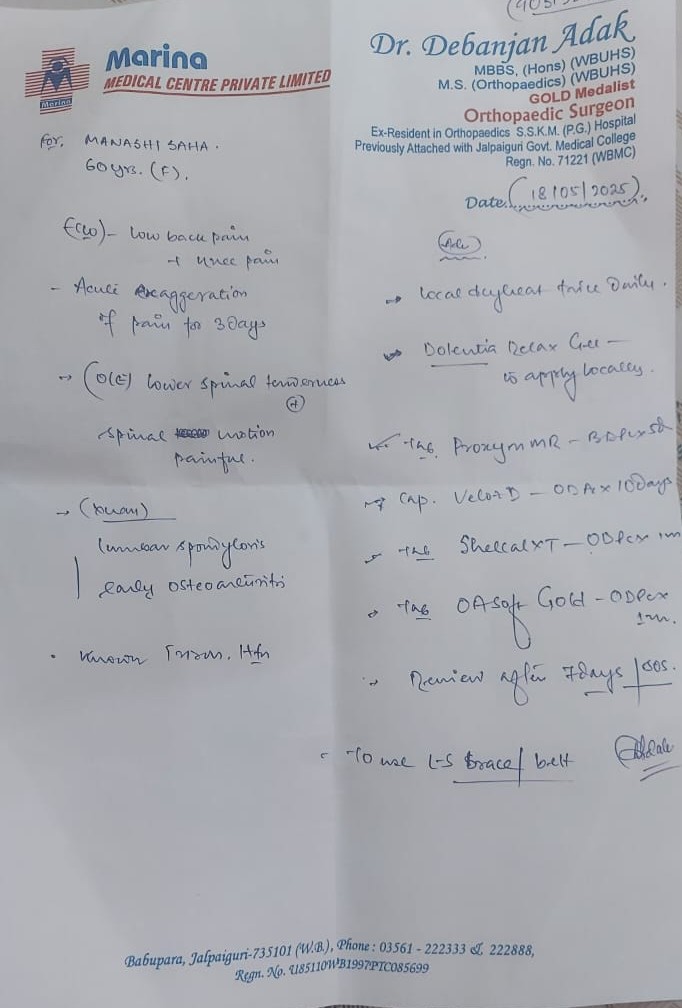 Marina
MEDICAL CENTRE PRIVATE LIMITED
Marina
Dr. Debanjan Adak
MBBS, (Hons) (WBUHS)
M.S. (Orthopaedics) (WBUHS)
GOLD Medalist
Orthopaedic Surgeon
Ex-Resident in Orthopaedics S.S.K.M. (P.G.) Hospital
Previously Attached with Jalpaiguri Govt. Medical College
Regn. No. 71221 (WBMC)
Date. (18/05/2025)
For, MANASHI SAHA.
60 yrs. (F).
(C/O) - Low back pain
+ Knee pain
- Acute exaggeration
of pain for 3 Days
→ (O/E) lower spinal tenderness
(+)
spinal motion
painful.
lumbar spondylosis
early osteoarthritis
• Known Htn
Adv
→ Local dry heat twice Daily.
→ Dolentia Relax Gel -
to apply locally.
Tab. Proxym MR - BDPC x 5d
→ Cap. Veloz D - ODAC x 10 Days
Tab Shelcal XT - ODPC x 1m
→ Tab OA Soft Gold - ODPC x
1m.
Review after 7 days / SOS.
To use L-S brace / belt
Babupara, Jalpaiguri-735101 (W.B.), Phone : 03561 - 222333 & 222888,
Regn. No. U85110WB1997PTC085699